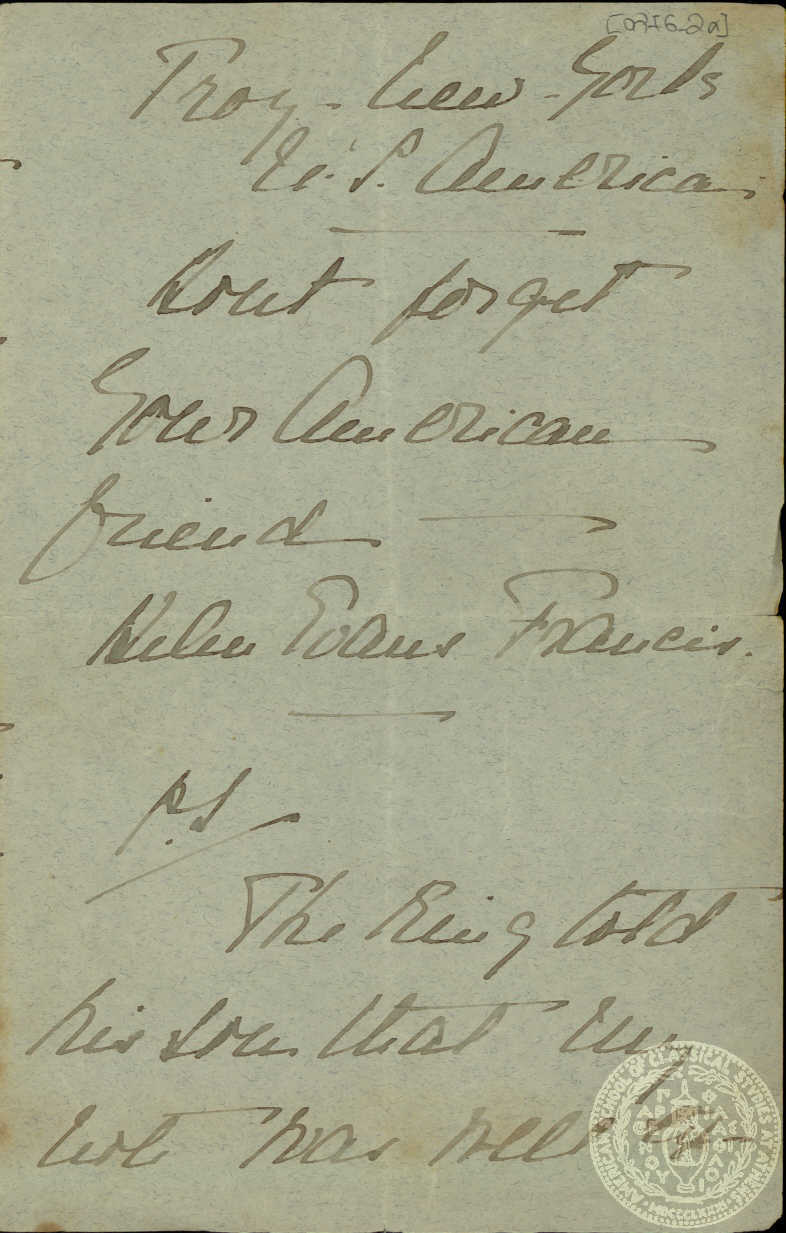 [0276-2a]
Troy - New - York
U. S. America
Dont forget
Your American
friend
Helen Evans Francis.
P.S
The King told
his son that my
was
AMERICAN SCHOOL OF CLASSICAL STUDIES AT ATHENS
MDCCCLXXXI